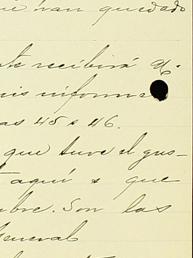 que iran quedado
recibirá
mis informe
as 45 a 46.
que tuve el gus-
aquí a que
bre. Son las
General